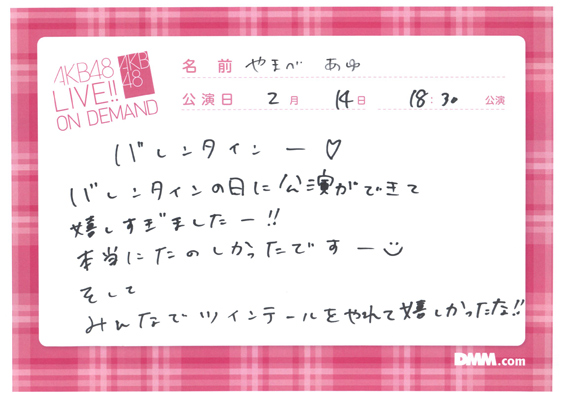 AKB48
LIVE!!
ON DEMAND
AKB
48
名 前 やまべ あゆ
公演日 2月 14日 18:30 公演
バレンタインー♡
バレンタインの日に公演ができて
嬉しすぎましたー!!
本当にたのしかったですー
そして
みんなでツインテールをやれて嬉しかったな!!
DMM.com